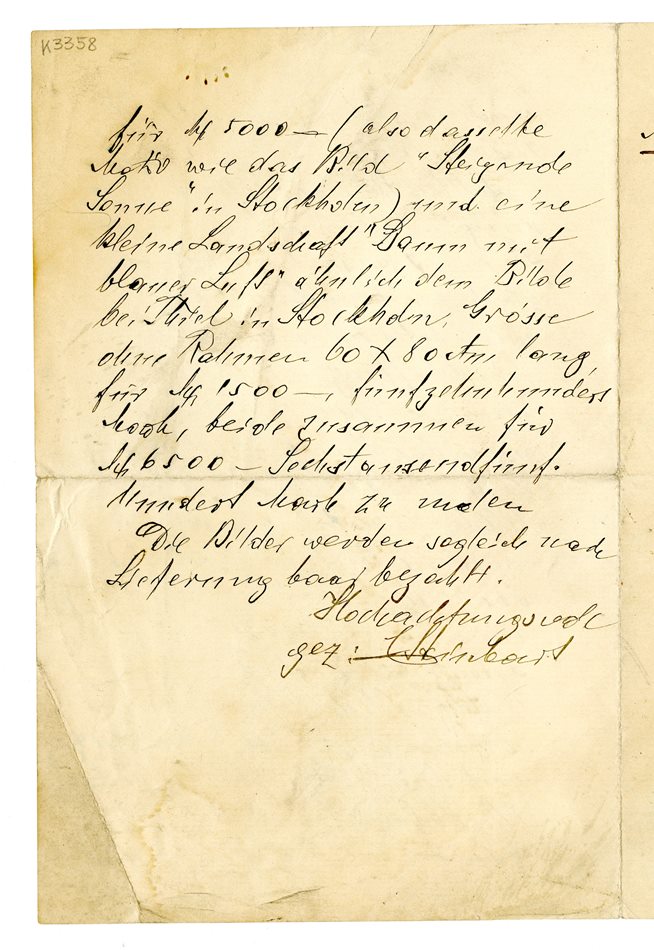 K3358
für M 5000 – (also dasselbe
Motiv wie das Bild "Steigende
Sonne" in Stockholm) und eine
kleine Landschaft "Baum mit
blauer Luft" ähnlich dem Bilde
bei Thiel in Stockholm, Grösse
ohne Rahmen 60 X 80 ctm lang,
für M 1500 –, fünfzehnhundert
Mark, beide zusammen für
M 6500 – Sechstausendfünf-
hundert Mark zu
Die Bilder werden sogleich nach
Lieferung baar bezahlt.
Hochachtungsvoll
gez: Steinbart